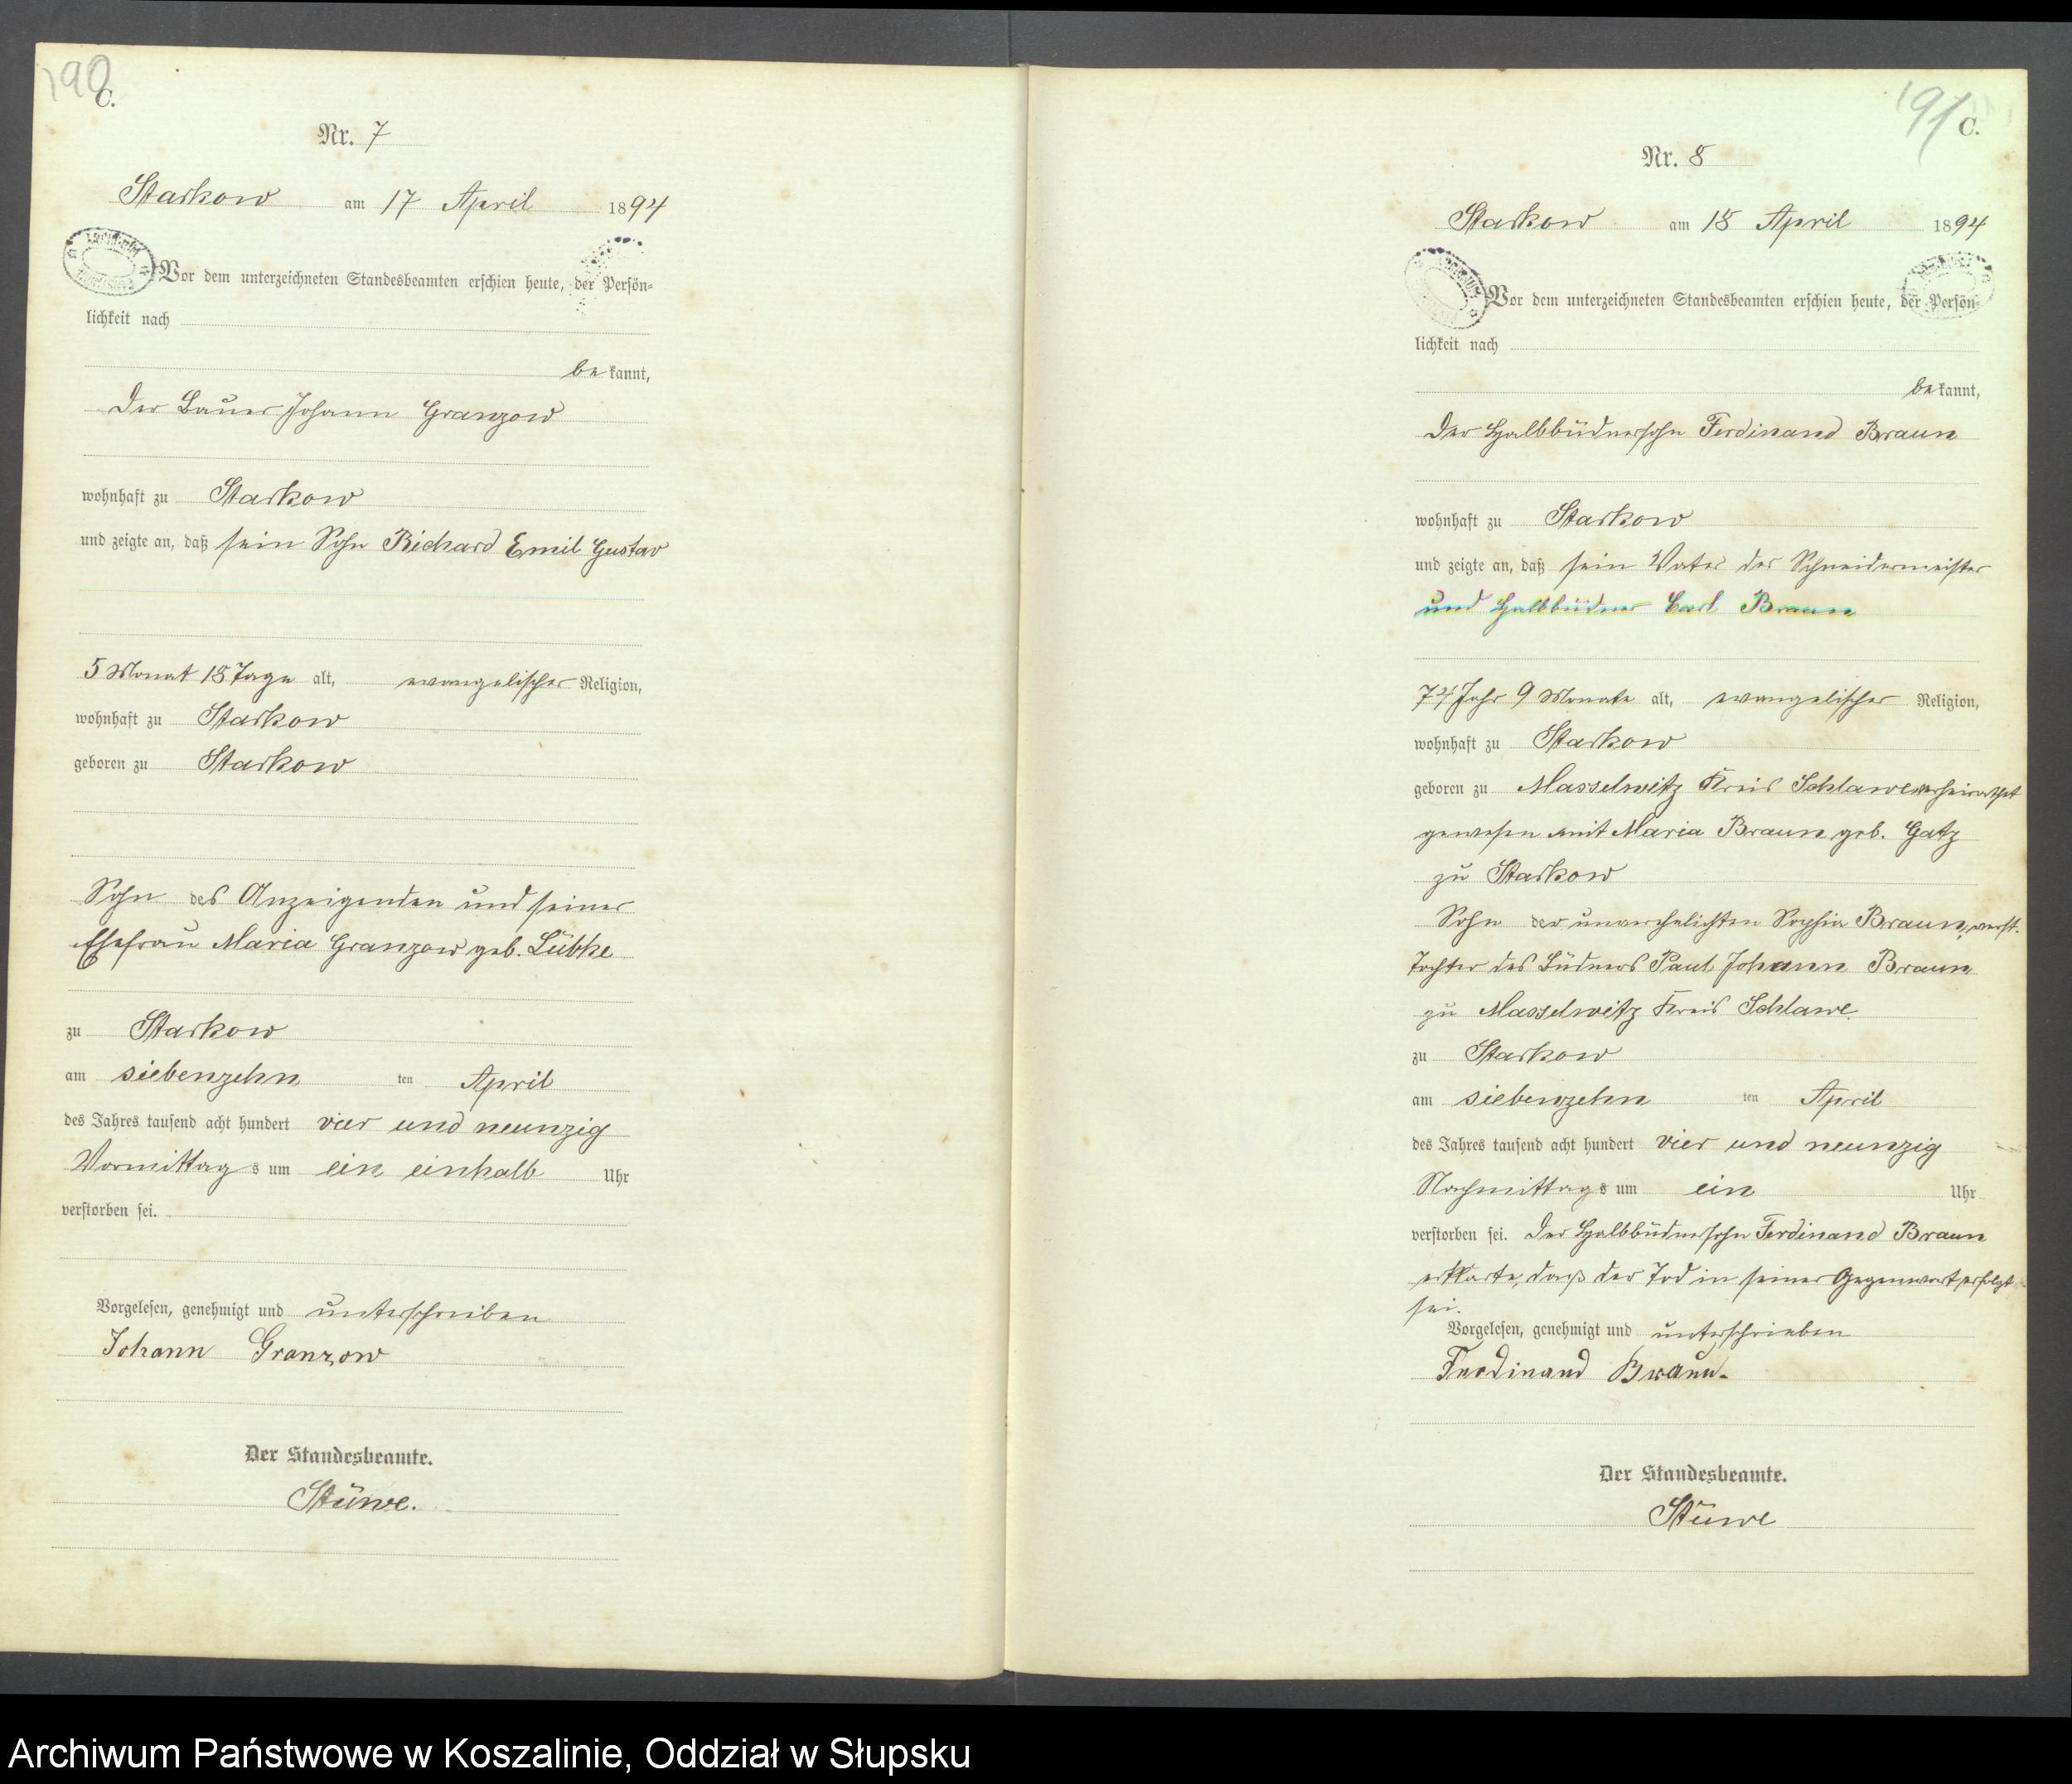 190
C.
Nr. 7
Starkow am 17 April 1894
Vor dem unterzeichneten Standesbeamten erschien heute, der Persön-
lichkeit nach
bekannt,
der Bauer Johann Granzow
wohnhaft zu Starkow
und zeigte an, daß sein Sohn Richard Emil Gustav
5 Monat 18 Tage alt, evangelischer Religion,
wohnhaft zu Starkow
geboren zu Starkow
Sohn des Anzeigenden und seiner
Ehefrau Maria Granzow geb. Lübke
zu Starkow
am siebenzehn ten April
des Jahres tausend acht hundert vier und neunzig
Vormittags um ein einhalb Uhr
verstorben sei.
Vorgelesen, genehmigt und unterschrieben
Johann Granzow
Der Standesbeamte.
Stüwe.
191
C.
Nr. 8
Starkow am 18 April 1894
Vor dem unterzeichneten Standesbeamten erschien heute, der Persön-
lichkeit nach
bekannt,
der Halbbüdnersohn Ferdinand Braun
wohnhaft zu Starkow
und zeigte an, daß sein Vater der Schneidermeister
und Halbbüdner Carl Braun
74 Jahr 9 Monate alt, evangelischer Religion,
wohnhaft zu Starkow
geboren zu Masselwitz Kreis Schlawe verheirathet
gewesen mit Maria Braun geb. Gatz
zu Starkow
Sohn der unverehelichten Sophia Braun, verst.
Tochter des Büdners Paul Johann Braun
zu Masselwitz Kreis Schlawe
zu Starkow
am siebenzehn ten April
des Jahres tausend acht hundert vier und neunzig
Nachmittags um ein Uhr
verstorben sei. Der Halbbüdnersohn Ferdinand Braun
erklärte, daß der Tod in seiner Gegenwart erfolgt
sei.
Vorgelesen, genehmigt und unterschrieben
Ferdinand Braun.
Der Standesbeamte.
Stüwe
Archiwum Państwowe w Koszalinie, Oddział w Słupsku